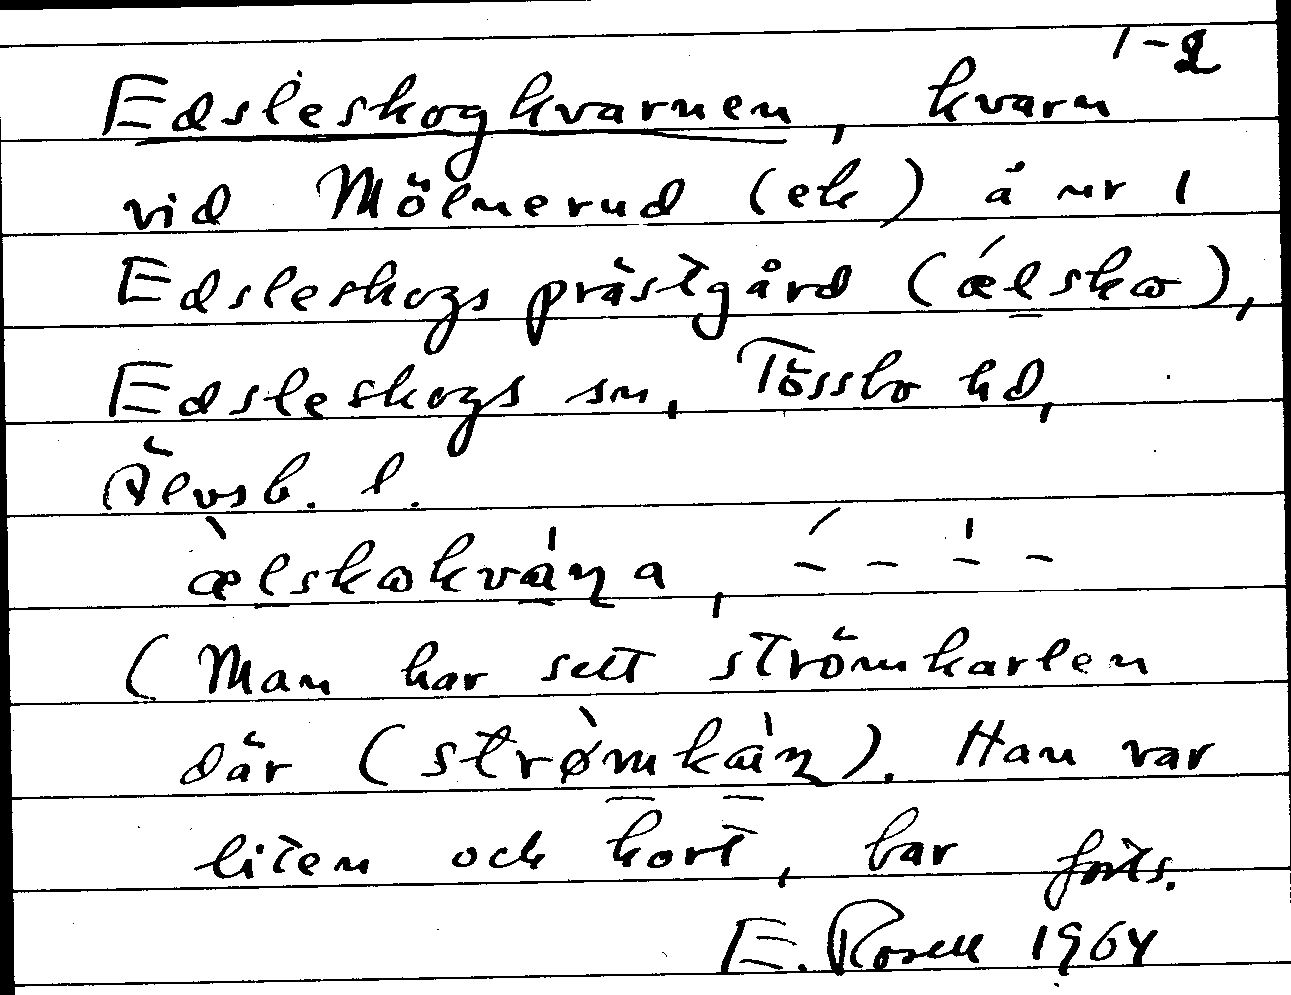 1-2
Edsleskogkvarnen, kvarn
vid Mölnerud (ek) å nr 1
Edsleskogs prästgård (ǽlskɷ),
Edsleskogs sn, Tössbo hd,
Älvsb. l.
æ̀lskɷkvàɳa, – – – –
(Man har sett strömkarlen
där (strø̀mkàɳ). Han var
liten och kort, bar forts.
E. Rosell 1964